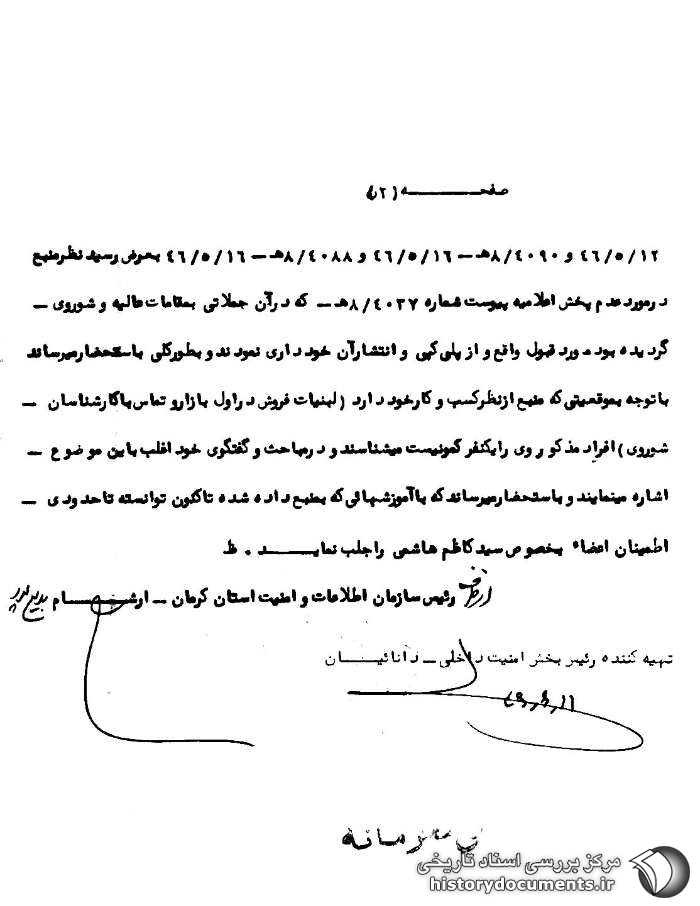 صفحـــــــه (۲)
۴۶/۵/۱۲ و ۸/۴۰۹۰هـ – ۴۶/۵/۱۶ و ۸/۴۰۸۸هـ – ۴۶/۵/۱۶ بعرض رسید نظر منبع
در مورد عدم پخش اعلامیه پیوست شماره ۸/۴۰۳۷هـ – که در آن جملاتی بمقامات عالیه و شوروی –
گردیده بود مورد قبول واقع و از پلی کپی و انتشار آن خود داری نمودند و بطور کلی باستحضار میرساند
با توجه بموقعیتی که منبع از نظر کسب و کار خود دارد (لبنیات فروش در اول بازار و تماس با کارشناسان –
شوروی) افراد مذکور وی را یکنفر کمونیست میشناسند و در مباحث و گفتگوی خود اغلب باین موضوع –
اشاره مینمایند و باستحضار میرساند که با آموزشهائی که بمنبع داده شده تاکنون توانسته تا حدودی –
اطمینان اعضاء بخصوص سید کاظم هاشمی را جلب نمایـــــد . ظ
از طرف رئیس سازمان اطلاعات و امنیت استان کرمان – ارشـــــام
تهیه کننده رئیس بخش امنیت داخلی – دانائیـــان
محرمانه
مرکز بررسی اسناد تاریخی
historydocuments.ir